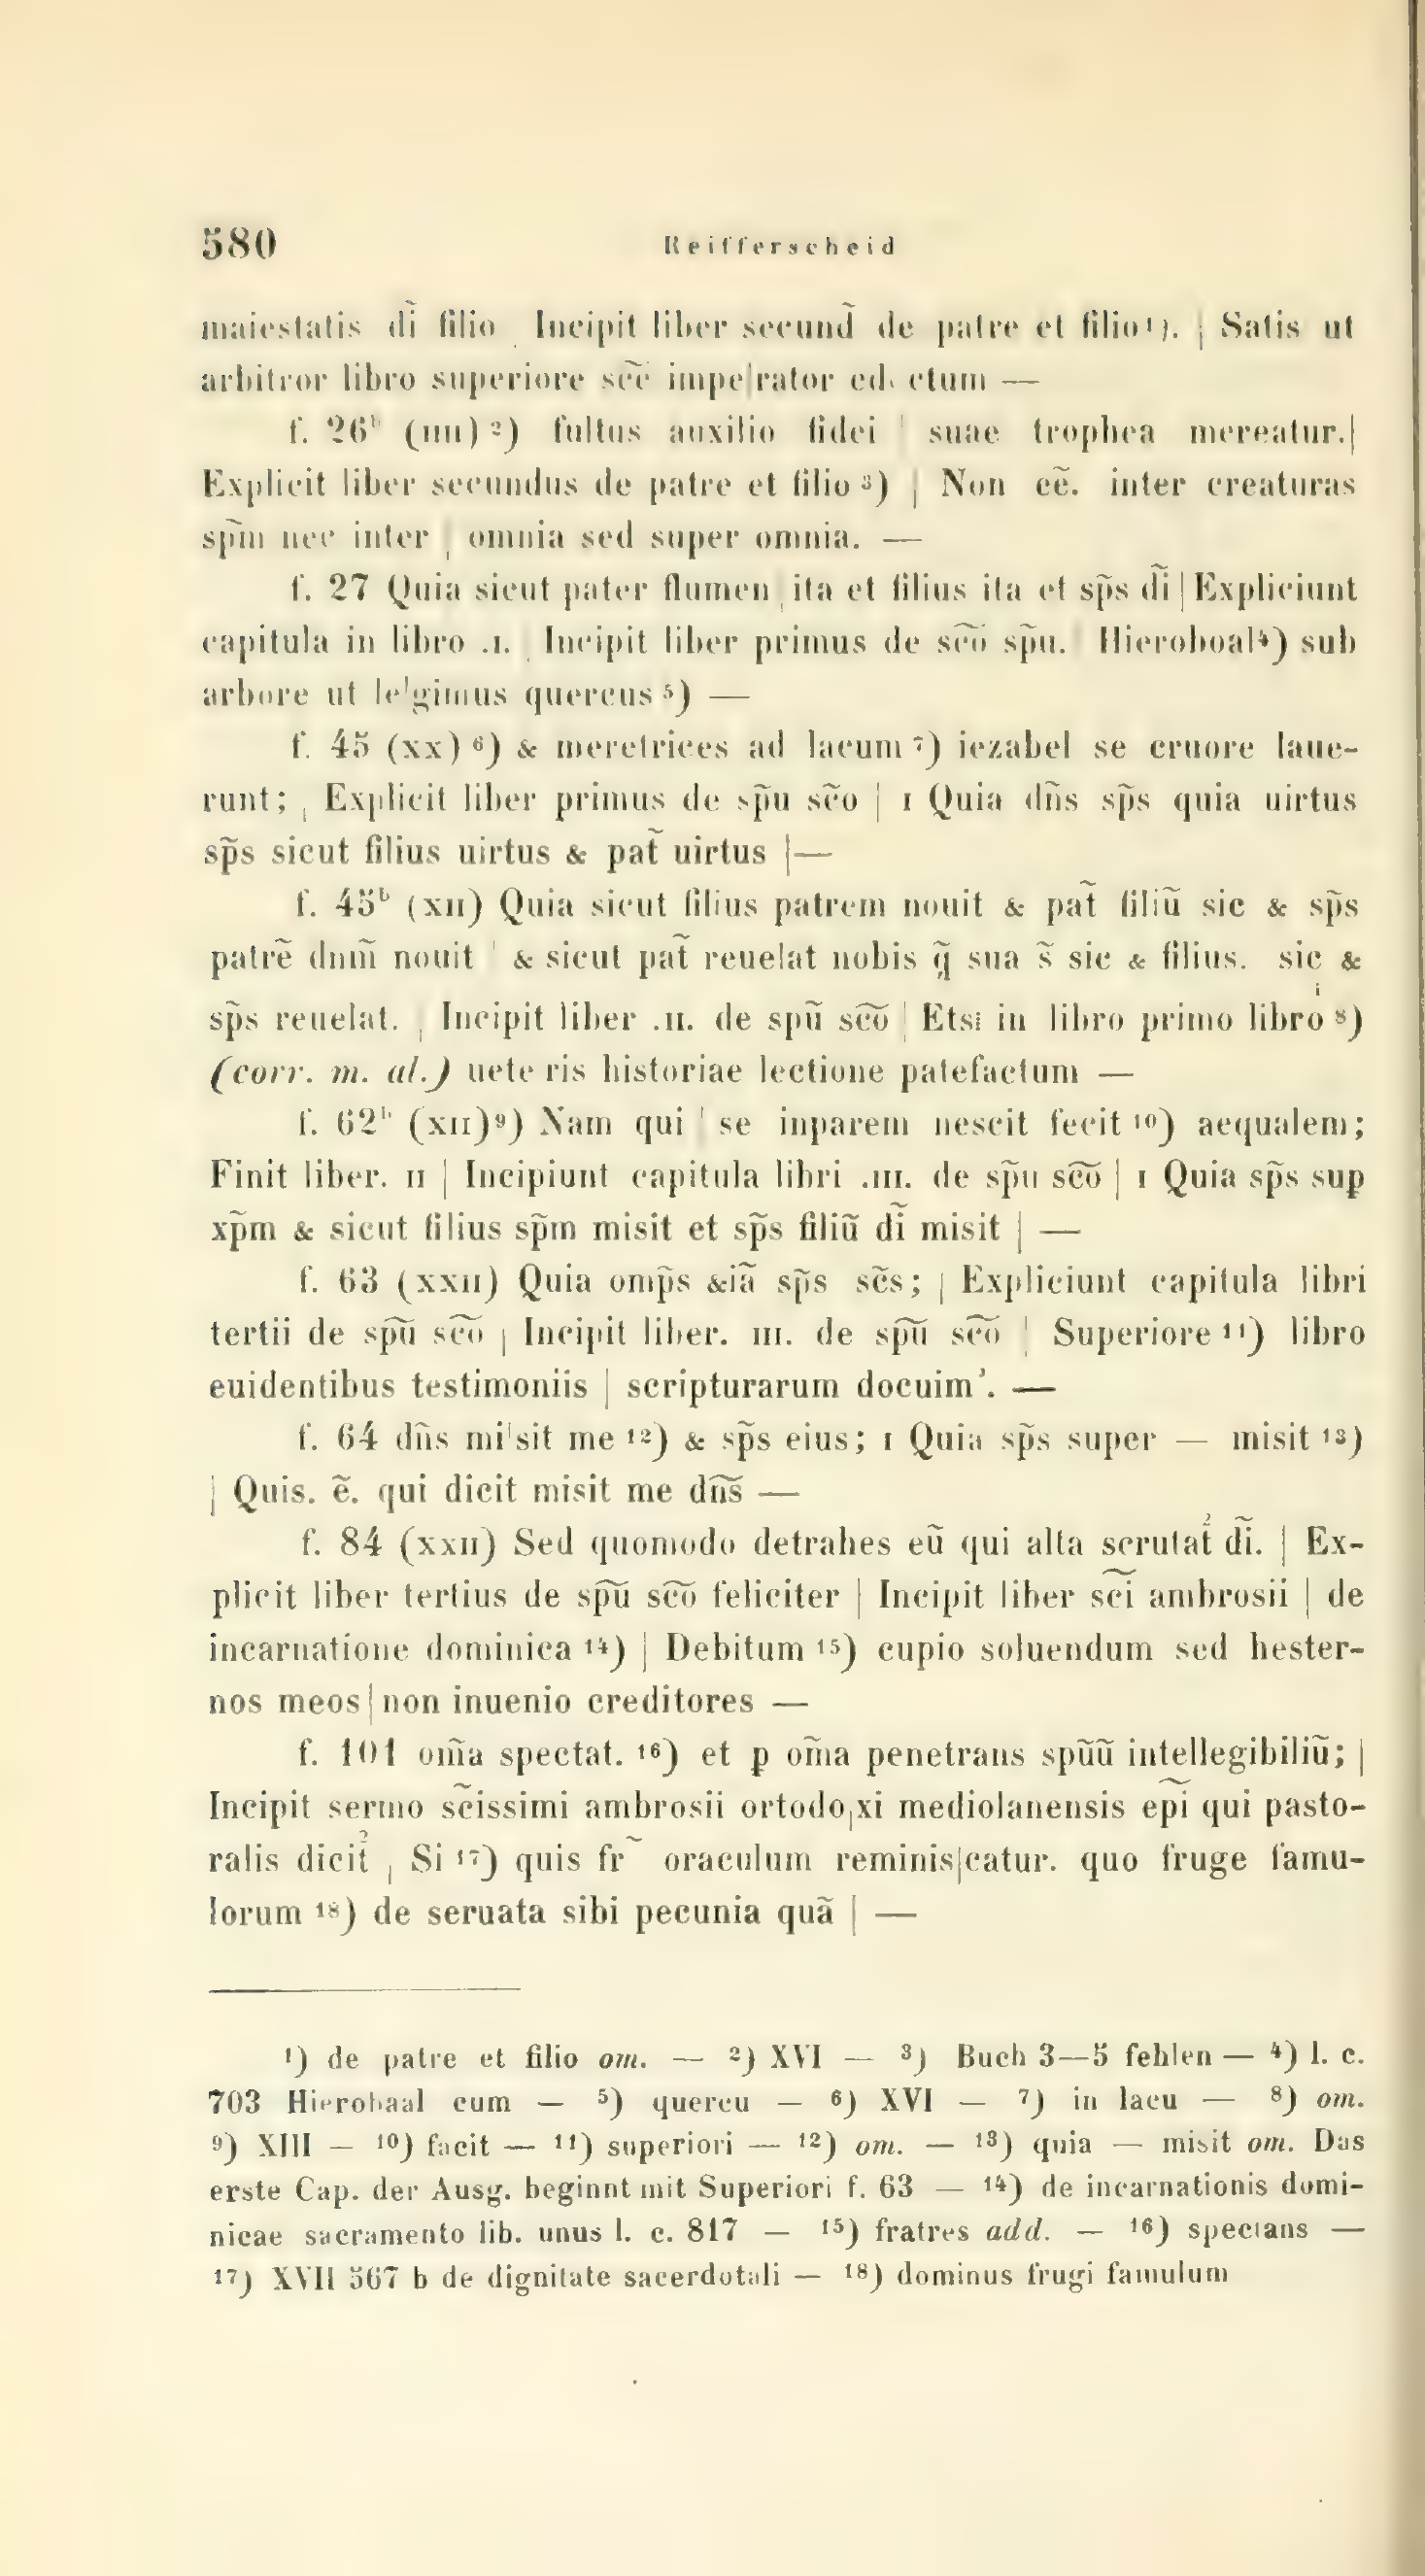 580 Reifferscheid
maiestatis di̅ filio | Incipit liber secund̃ de patre et filio ¹). | Satis ut
arbitror libro superiore scẽ impe|rator ed, ctum —
f. 26ᵇ (IIII) ²) fultus auxilio fidei | suae trophea mereatur.|
Explicit liber secundus de patre et filio ³) | Non eẽ. inter creaturas
sp̃m nec inter | omnia sed super omnia. —
f. 27 Quia sicut pater flumen | ita et filius ita et sp̃s dĩ | Expliciunt
capitula in libro .I. | Incipit liber primus de scõ sp̃u. | Hieroboal ⁴) sub
arbore ut le|gimus quercus ⁵) —
f. 45 (XX) ⁶) & meretrices ad lacum ⁷) iezabel se cruore laue-
runt; | Explicit liber primus de sp̃u sc̃o | I Quia dñs sp̃s quia uirtus
sp̃s sicut filius uirtus & pat̃ uirtus |—
f. 45ᵇ (XII) Quia sicut filius patrem nouit & pat̃ filiũ sic & sp̃s
patrẽ dnm̃ nouit | & sicut pat̃ reuelat nobis q̃ sua s̃ sic & filius. sic &
sp̃s reuelat. | Incipit liber .II. de spũ scõ | Etsi in libro primo libro ⁸)
(corr. m. al.) uete ris historiae lectione patefactum —
f. 62ᵇ (XII) ⁹) Nam qui | se inparem nescit fecit ¹⁰) aequalem;
Finit liber. II | Incipiunt capitula libri .III. de sp̃u scõ | I Quia sp̃s sup
xp̃m & sicut filius sp̃m misit et sp̃s filiũ dĩ misit | —
f. 63 (XXII) Quia omp̃s &iã sp̃s sc̃s; | Expliciunt capitula libri
tertii de spũ scõ | Incipit liber. III. de spũ scõ | Superiore ¹¹) libro
euidentibus testimoniis | scripturarum docuim'. —
f. 64 dñs mi|sit me ¹²) & sp̃s eius; I Quia sp̃s super — misit ¹³)
| Quis. ẽ. qui dicit misit me dñs —
f. 84 (XXII) Sed quomodo detrahes eũ qui alta scrutat̉ dĩ. | Ex-
plicit liber tertius de spũ scõ feliciter | Incipit liber scĩ ambrosii | de
incarnatione dominica ¹⁴) | Debitum ¹⁵) cupio soluendum sed hester-
nos meos | non inuenio creditores —
f. 101 om̃a spectat. ¹⁶) et p om̃a penetrans spũũ intellegibiliũ; |
Incipit sermo sc̃issimi ambrosii ortodo|xi mediolanensis epĩ qui pasto-
ralis dicit̉ | Si ¹⁷) quis fr̃ oraculum reminis|catur. quo fruge famu-
lorum ¹⁸) de seruata sibi pecunia quã | —
¹) de patre et filio om. — ²) XVI — ³) Buch 3—5 fehlen — ⁴) l. c.
703 Hierobaal cum — ⁵) quercu — ⁶) XVI — ⁷) in lacu — ⁸) om.
⁹) XIII — ¹⁰) facit — ¹¹) superiori — ¹²) om. — ¹³) quia — misit om. Das
erste Cap. der Ausg. beginnt mit Superiori f. 63 — ¹⁴) de incarnationis domi-
nicae sacramento lib. unus l. c. 817 — ¹⁵) fratres add. — ¹⁶) spectans —
¹⁷) XVII 567 b de dignitate sacerdotali — ¹⁸) dominus frugi famulum